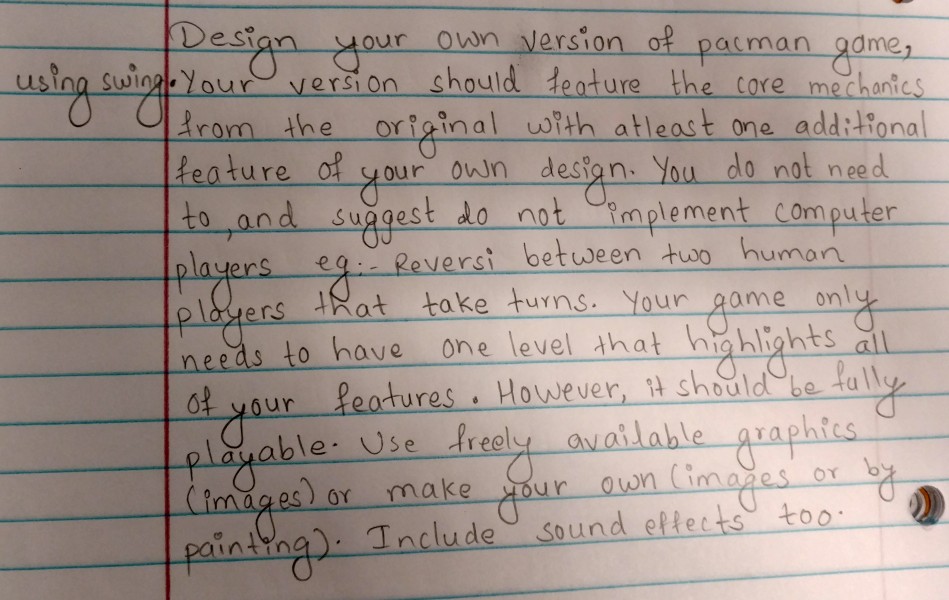 Design your own version of pacman game,
using swing. Your version should feature the core mechanics
from the original with atleast one additional
feature of your own design. You do not need
to, and suggest do not implement computer
players eg:- Reversi between two human
players that take turns. Your game only
needs to have one level that highlights all
of your features. However, it should be fully
playable. Use freely available graphics
(images) or make your own (images or by
painting). Include sound effects too.